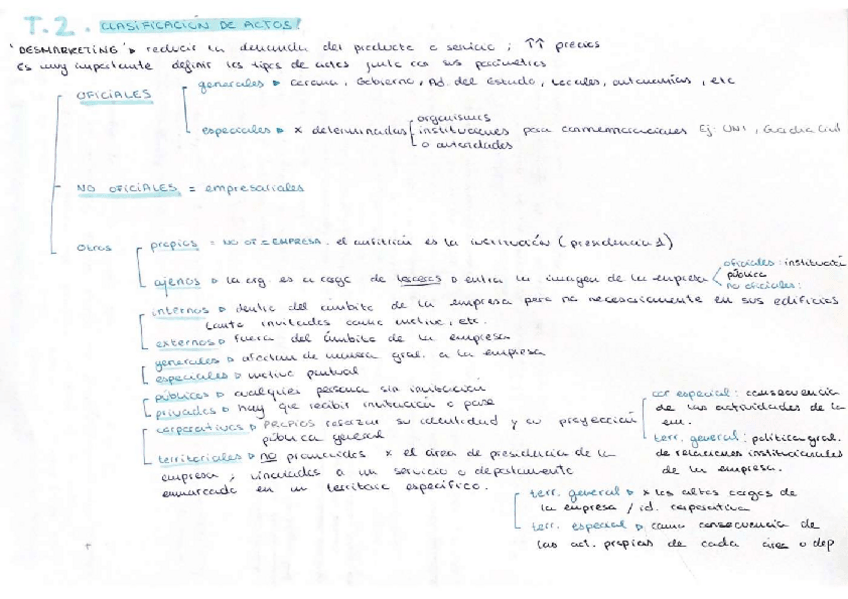 T.2. CLASIFICACIÓN DE ACTOS!
'DESMARKETING' → reducir la demanda del producto o servicio ; ↑↑ precios
Es muy importante definir los tipos de actos junto con sus parámetros
OFICIALES
generales → corona, Gobierno, Ad. del Estado, Locales, autonomías, etc
especiales → x determinados
organismos
instituciones
o autoridades
para conmemoraciones Ej: UNI, Guardia Civil
NO OFICIALES = empresariales
Otros
propios = NO OF = EMPRESA. el anfitrión es la institución (presidencia 1)
ajenos → la org. es a cargo de terceros → entra la imagen de la empresa
oficiales: instituci
pública
no oficiales:
internos → dentro del ámbito de la empresa pero no necesariamente en sus edificios
tanto invitados como motivo, etc.
externos → fuera del ámbito de la empresa
generales → afectan de manera gral. a la empresa
especiales → motivo puntual
públicos → cualquier persona sin invitación
privados → hay que recibir invitación o pase
corporativos → PROPIOS reforzar su identidad y su proyección
pública general
cor especial: consecuencia
de las actividades de la
em.
terr. general: política gral.
de relaciones institucionales
de la empresa.
territoriales → no promovidos x el área de presidencia de la
empresa ; vinculados a un servicio o departamento
enmarcado en un territorio específico.
terr. general → x los altos cargos de
la empresa / id. corporativa
terr. especial → como consecuencia de
las act. propias de cada área o dep